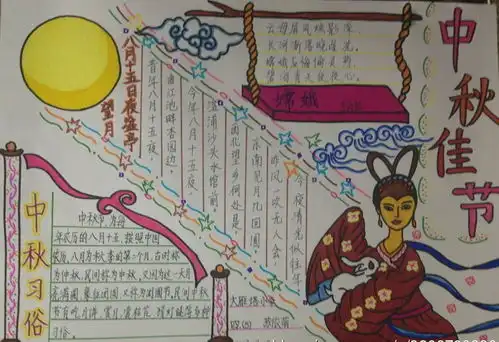 中秋佳节
云母屏风烛影深,
长河渐落晓星沉。
嫦娥应悔偷灵药,
碧海青天夜夜心。
嫦娥
八月十五日夜湓亭
望月
昔年八月十五夜,
曲江池畔杏园边。
今年八月十五夜,
湓浦沙头水馆前。
西北望乡何处是,
东南见月几回圆。
昨风一吹无人会,
今夜清光似往年
中秋习俗
中秋节为每
年农历的八月十五。按照中国
农历,八月为秋季的第二个月,古时称
为仲秋,民间称为中秋,又因为这一天月
亮满圆,象征团圆,又称为团圆节,民间中秋
节有吃月饼、赏月、赏桂花、猜灯谜等多种
习俗。
大雁塔小学